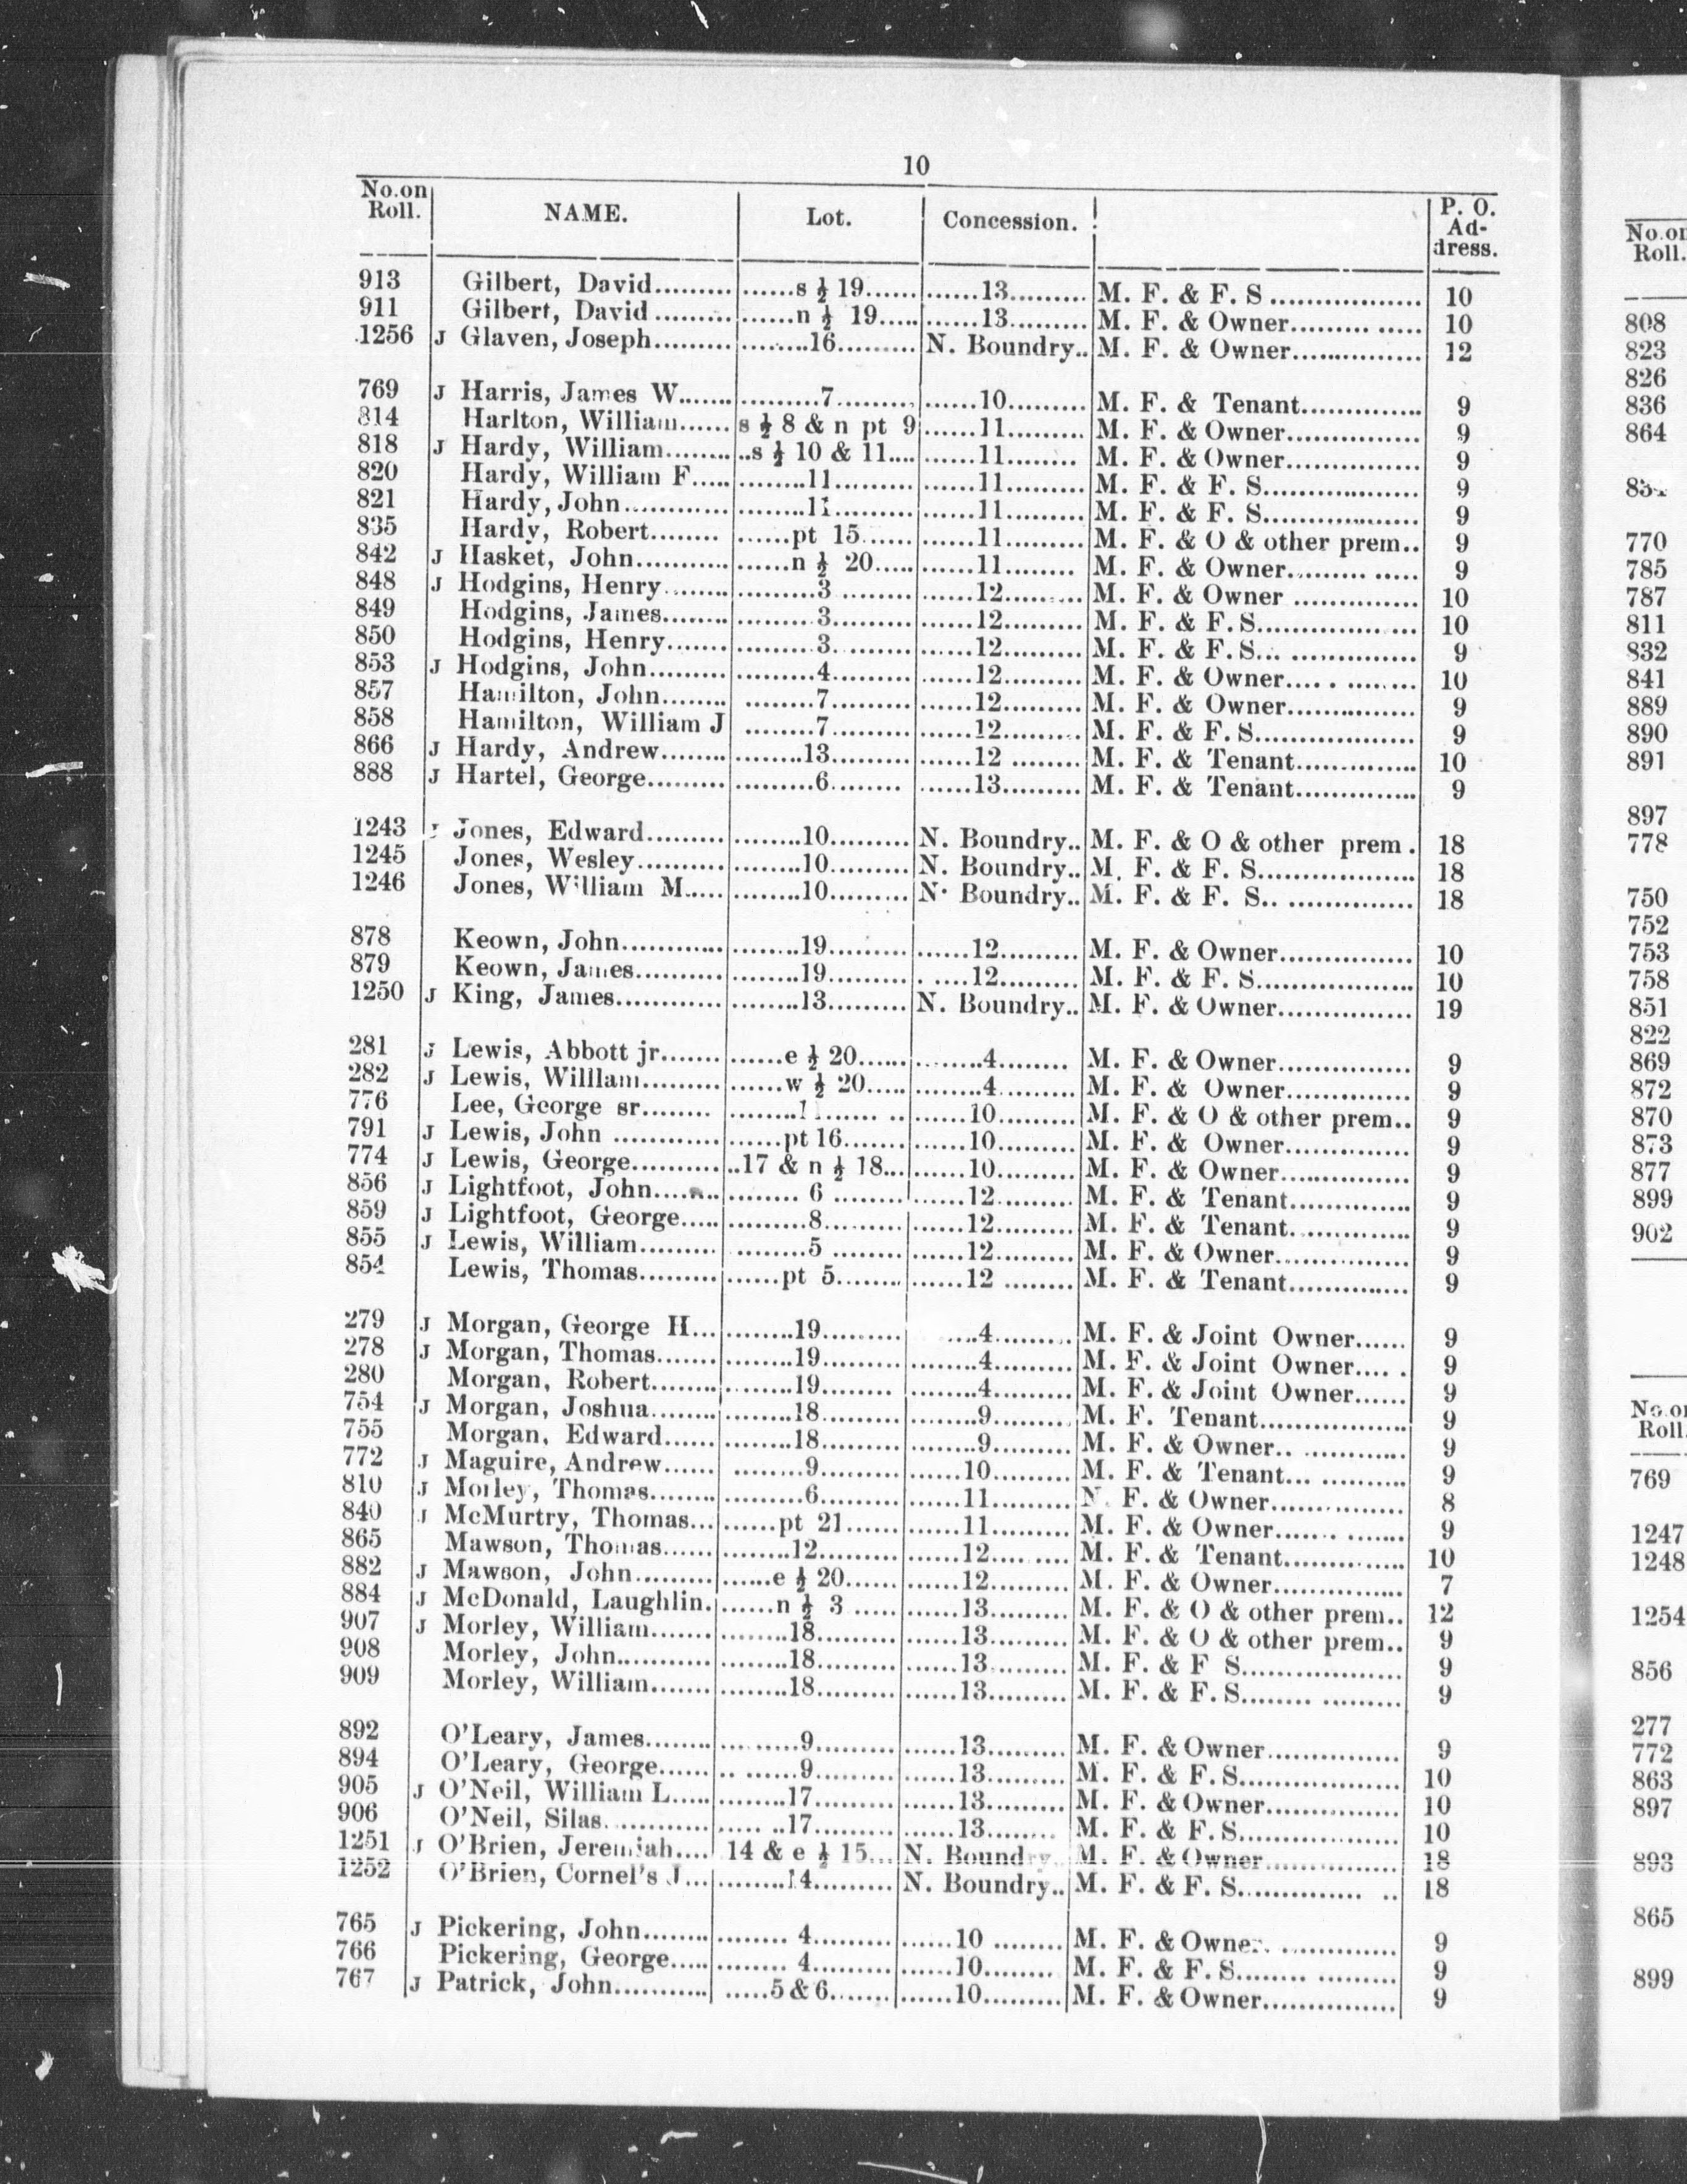 10
No.on Roll. NAME. Lot. Concession. P. O. Ad-dress.
913 Gilbert, David.........  ......s ½ 19...... ......13......... M. F. & F. S ................. 10
911 Gilbert, David ......... ......n ½ 19..... ......13......... M. F. & Owner......... ..... 10
1256 J Glaven, Joseph......... ........16......... N. Boundry.. M. F. & Owner............... 12
769 J Harris, James W....... .........7......... ......10......... M. F. & Tenant.............. 9
814 Harlton, William...... s ½ 8 & n pt 9 ......11......... M. F. & Owner............... 9
818 J Hardy, William........ ..s ½ 10 & 11.... ......11........ M. F. & Owner............... 9
820 Hardy, William F..... ........11......... ......11......... M. F. & F. S................. 9
821 Hardy, John............ ........11......... ......11......... M. F. & F. S................. 9
835 Hardy, Robert........ ......pt 15...... ......11......... M. F. & O & other prem.. 9
842 J Hasket, John............ ......n ½ 20..... ......11........ M. F. & Owner......... ..... 9
848 J Hodgins, Henry........ .........3 ......... ......12......... M. F. & Owner .............. 10
849 Hodgins, James........ .........3......... ......12......... M. F. & F. S............... ... 10
850 Hodgins, Henry....... .........3......... ......12......... M. F. & F. S... .............. 9
853 J Hodgins, John......... .........4......... ......12......... M. F. & Owner.... . ........ 10
857 Hamilton, John........ ........7......... ......12......... M. F. & Owner.............. 9
858 Hamilton, William J ........7......... ......12......... M. F. & F. S................. 9
866 J Hardy, Andrew........ ........13......... ......12 ........ M. F. & Tenant.............. 10
888 J Hartel, George......... .........6........ ......13......... M. F. & Tenant.............. 9
1243 J Jones, Edward......... ........10......... N. Boundry.. M. F. & O & other prem . 18
1245 Jones, Wesley.......... ........10......... N. Boundry.. M. F. & F. S................. 18
1246 Jones, William M..... ........10......... N. Boundry.. M. F. & F. S.. .............. 18
878 Keown, John............. ........19......... ......12......... M. F. & Owner............... 10
879 Keown, James.......... ........19......... . ....12......... M. F. & F. S................. 10
1250 J King, James............ ........13......... N. Boundry.. M. F. & Owner............... 19
281 J Lewis, Abbott jr....... ......e ½ 20...... .........4........ M. F. & Owner............... 9
282 J Lewis, Willlam......... ......w ½ 20...... ........4......... M. F. & Owner............... 9
776 Lee, George sr........ ......10......... M. F. & O & other prem.. 9
791 J Lewis, John ............ ......pt 16....... ......10......... M. F. & Owner.............. 9
774 J Lewis, George.......... ..17 & n ½ 18... ......10......... M. F. & Owner............... 9
856 J Lightfoot, John........ ........ 6 ........ ......12......... M. F. & Tenant.............. 9
859 J Lightfoot, George..... .........8......... ......12......... M. F. & Tenant.............. 9
855 J Lewis, William......... .........5 ........ ......12......... M. F. & Owner............... 9
854 Lewis, Thomas......... ......pt 5........ ......12 ........ M. F. & Tenant.............. 9
279 J Morgan, George H... ........19......... ....4......... M. F. & Joint Owner...... 9
278 J Morgan, Thomas....... ........19......... ........4......... M. F. & Joint Owner.... . 9
280 Morgan, Robert........ ........19......... ........4......... M. F. & Joint Owner...... 9
754 J Morgan, Joshua........ ........18......... ........9......... M. F. Tenant................. 9
755 Morgan, Edward...... ........18......... ........9......... M. F. & Owner.. ........... 9
772 J Maguire, Andrew...... ........9......... ......10......... M. F. & Tenant... .......... 9
810 J Morley, Thomas........ .........6......... ......11......... F. & Owner.............. 8
840 J McMurtry, Thomas... ......pt 21...... ......11......... M. F. & Owner...... ....... 9
865 Mawson, Thomas...... ........12......... ......12......... M. F. & Tenant............. 10
882 J Mawson, John.......... ......e ½ 20...... ......12......... M. F. & Owner............... 7
884 J McDonald, Laughlin. ......n ½ 3 ..... ......13......... M. F. & O & other prem.. 12
907 J Morley, William....... ........18......... ......13......... M. F. & O & other prem.. 9
908 Morley, John............ ........18......... ......13......... M. F. & F S.................. 9
909 Morley, William....... ........18......... ......13......... M. F. & F. S........ ......... 9
892 O'Leary, James........ .........9......... ......13......... M. F. & Owner............... 9
894 O'Leary, George...... .. ......9......... ......13......... M. F. & F. S.................. 10
905 J O'Neil, William L..... ........17......... ......13......... M. F. & Owner............... 10
906 O'Neil, Silas............ ..... ..17......... ......13........ M. F. & F. S.................. 10
1251 J O'Brien, Jeremiah.... 14 & e ½ 15... N. Boundry. M. F. & Owner............... 18
1252 O'Brien, Cornel's J... ........14......... N. Boundry.. M. F. & F. S.............. .. 18
765 J Pickering, John........ ........ 4......... ......10 ........ M. F. & Owner. ............. 9
766 Pickering, George..... ........ 4......... ......10........ M. F. & F. S........ ......... 9
767 J Patrick, John........... .....5 & 6....... ......10......... M. F. & Owner............... 9
No.on
Roll.
808
823
826
836
864
770
785
787
811
832
841
889
890
891
897
778
750
752
753
758
851
822
869
872
870
873
877
899
902
No.on
Roll.
769
1247
1248
1254
856
277
772
863
897
893
865
899